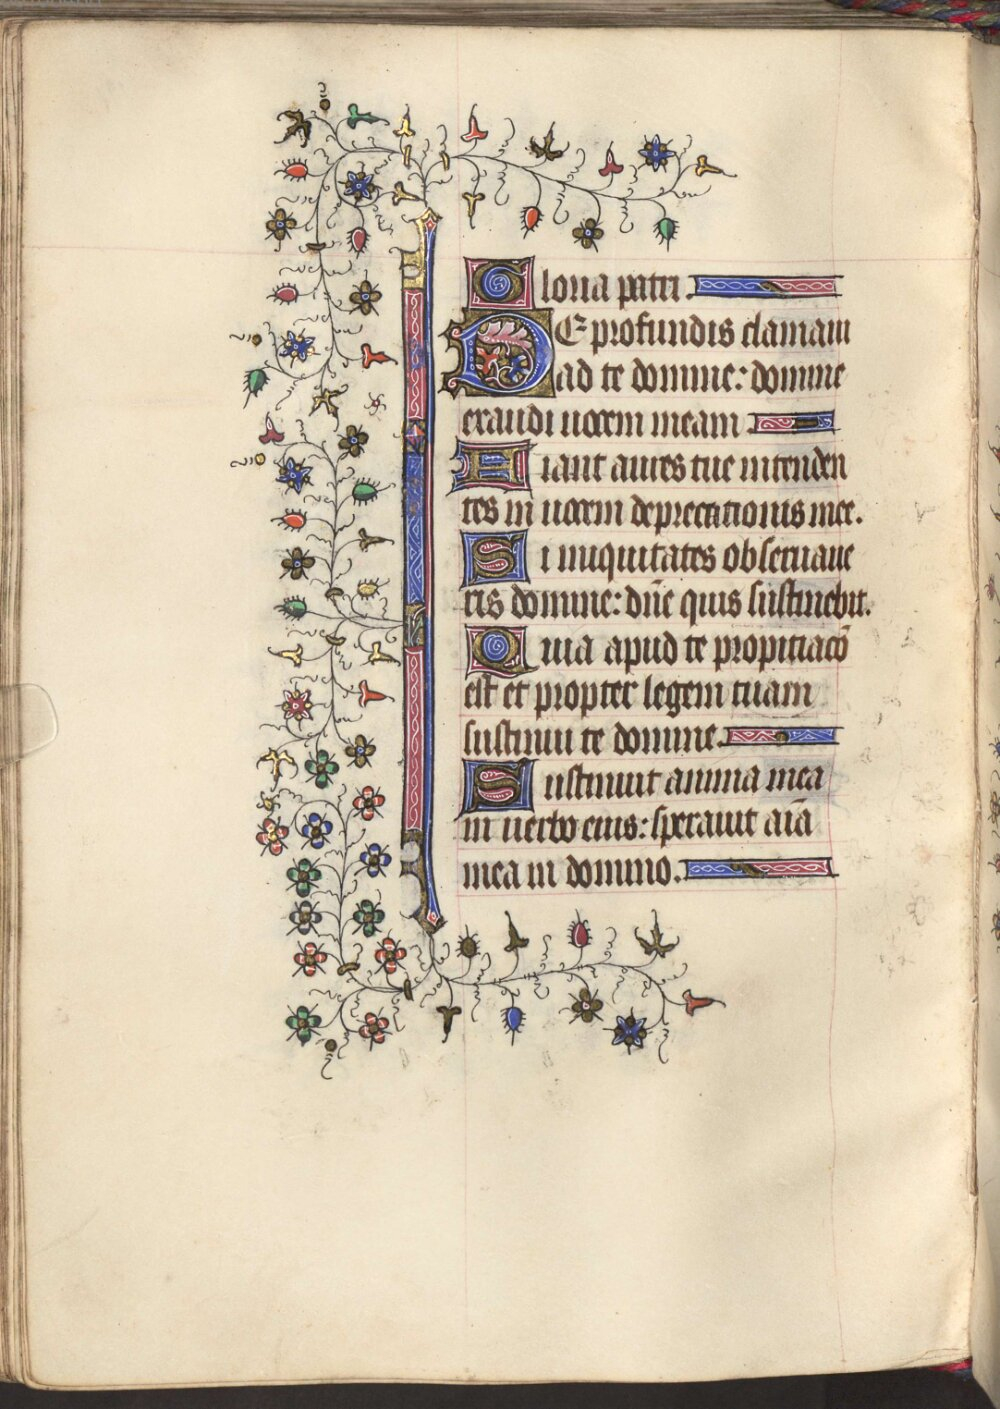 Gloria patri.
DE profundis clamaui
ad te domine: domine
exaudi uocem meam
Fiant aures tue intenden
tes in uocem deprecationis mee.
Si iniquitates obseruaue
ris domine: dn̄e quis sustinebit.
Quia apud te propitiacō
est et propter legem tuam
sustinui te domine.
Sustinuit anima mea
in uerbo eius: sperauit aīa
mea in domino.